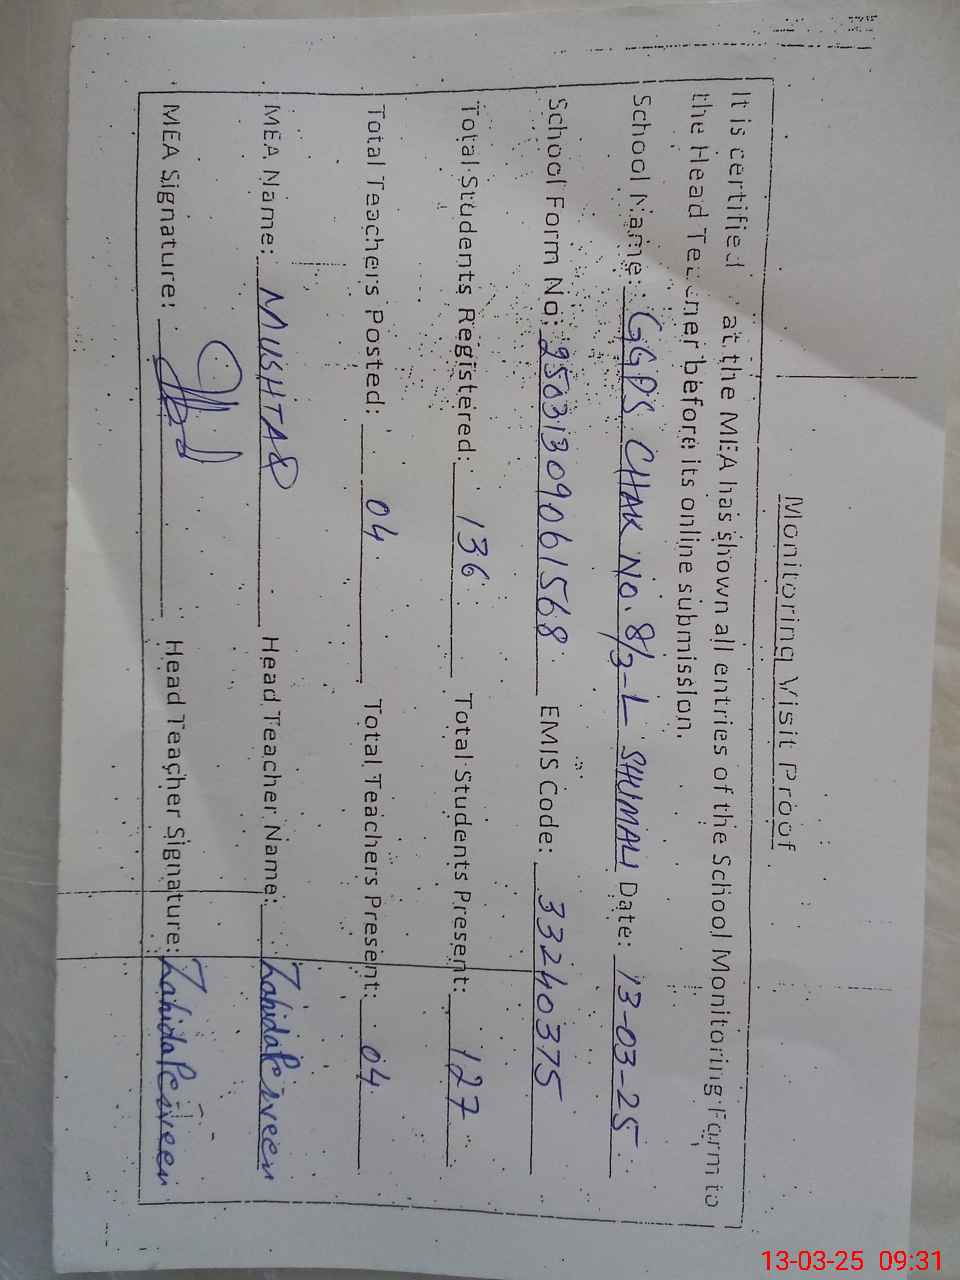 Monitoring Visit Proof
It is certified at the MEA has shown all entries of the School Monitoring Form to
the Head Teacher before its online submission.
School Name: GGPS CHAK NO. 8/3-L SHUMALI Date: 13-03-25
School Form No: 25031309061568 EMIS Code: 33240375
Total Students Registered: 136 Total Students Present: 127
Total Teachers Posted: 04 Total Teachers Present: 04
MEA Name: MUSHTAQ Head Teacher Name: Zahida Perveen
MEA Signature: Head Teacher Signature: Zahida Perveen
13-03-25 09:31